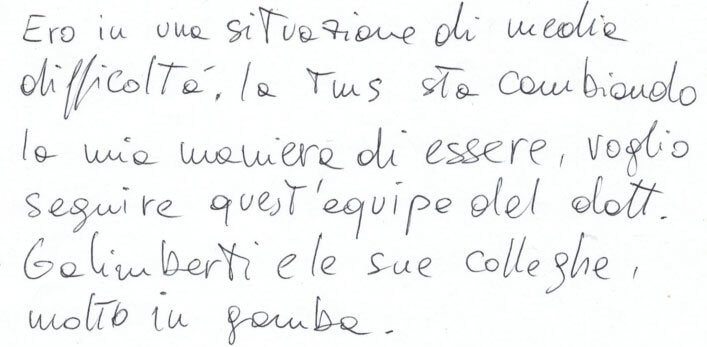 Ero in una situazione di media
difficoltà, la TMS sta cambiando
la mia maniera di essere, voglio
seguire quest'equipe del dott.
Galimberti e le sue colleghe,
molto in gamba.